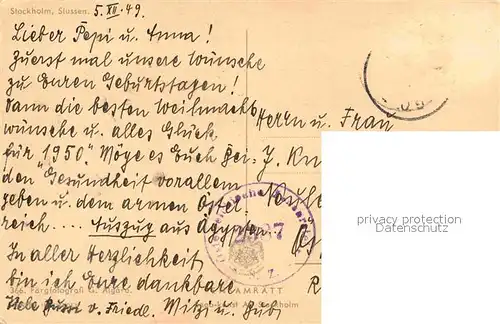 Stockholm, Slussen.
5. XII. 49.
Lieber Pepi u. Anna!
Zuerst mal unsere Wünsche
zu Euren Geburtstagen!
Dann die besten Weihnachts
wünsche u. alles Glück
für "1950". Möge es Euch Bei-
den Gesundheit vorallem
geben u. dem armen Öster-
reich.... Auszug aus Ägypten.
In aller Herzlichkeit
bin ich Eure dankbare
v. Friedl. Mitzi u.
Herrn u. Frau
J.
privacy protection
Datenschutz
366. Färgfotografi G.
ULTRAMRATT
Stockholm